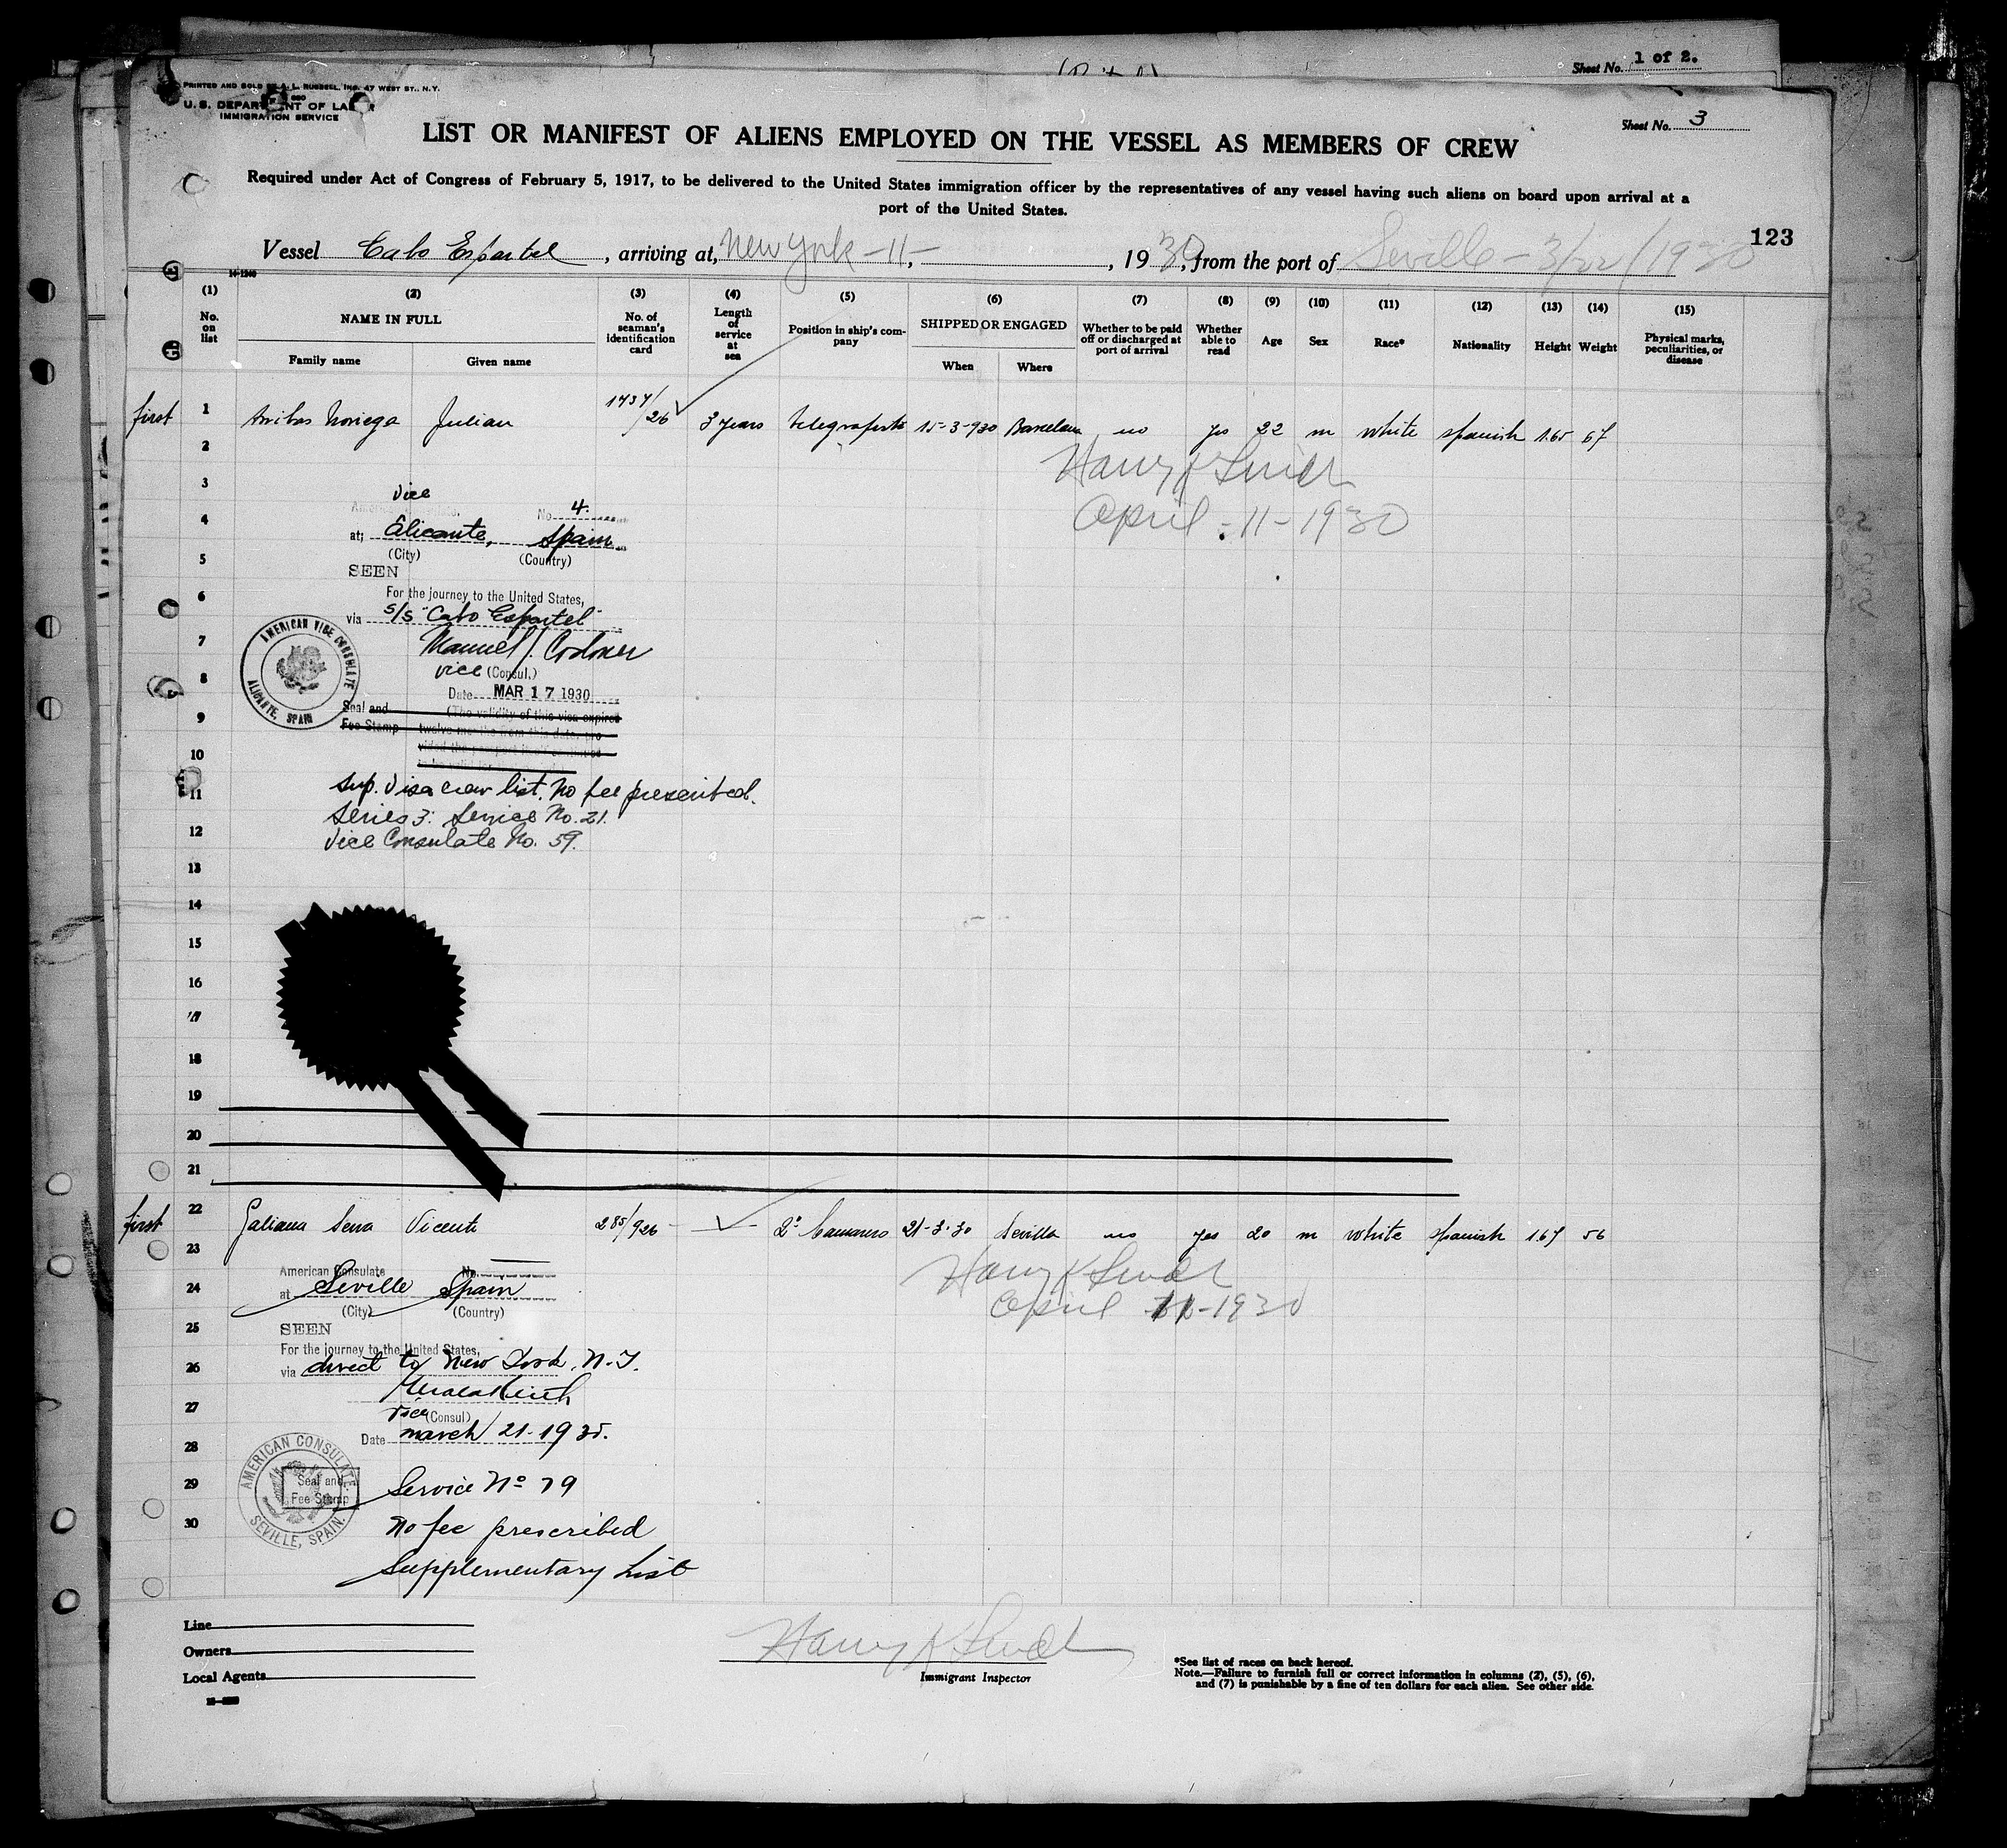 Sheet No. 1 of 2.
PRINTED AND SOLD BY A. L. RUSSELL, INC. 47 WEST ST., N.Y.
U. S. DEPARTMENT OF LABOR
IMMIGRATION SERVICE
Sheet No. 3
LIST OR MANIFEST OF ALIENS EMPLOYED ON THE VESSEL AS MEMBERS OF CREW
Required under Act of Congress of February 5, 1917, to be delivered to the United States immigration officer by the representatives of any vessel having such aliens on board upon arrival at a
port of the United States.
123
Vessel Cabo Espartel, arriving at, New York - 11 -, 1930, from the port of Seville - 3/22/1930
14-1240
(1) (2) (3) (4) (5) (6) (7) (8) (9) (10) (11) (12) (13) (14) (15)
No. on list NAME IN FULL No. of seaman's identification card Length of service at sea Position in ship's company SHIPPED OR ENGAGED Whether to be paid off or discharged at port of arrival Whether able to read Age Sex Race* Nationality Height Weight Physical marks, peculiarities, or disease
Family name Given name When Where
first 1 Arribas Noriega Julian 1437/26 3 years telegrafista 15-3-930 Barcelona no yes 22 m white spanish 1.65 67
2
Harry K
3
vice
April - 11 - 1930
4
No. 4.
at; Alicante, Spain
(City) (Country)
5
SEEN
6
For the journey to the United States,
via s/s "Cabo Espartel"
7
AMERICAN VICE CONSULATE
ALICANTE, SPAIN
Manuel J. Codoner
8
vice (Consul.)
Date MAR 17 1930
Seal and (The validity of this visa expires
9
Fee Stamp twelve months from this date, pro-
vided the passport
10
11
Sup. Visa crew list. No fee prescribed.
Series 3: Service No. 21.
12
Vice Consulate No. 59.
13
14
15
16
17
18
19
20
21
first 22 Galiana Serra Vicente 285/926 2º Camarero 21-3-30 Sevilla no yes 20 m white spanish 1.67 56
23
Harry K
American Consulate No.
24
at Seville Spain
April 11-1930
(City) (Country)
25
SEEN
For the journey to the United States,
26
via direct to New York, N.Y.
27
Vice (Consul)
Date March 21-1930.
28
AMERICAN CONSULATE
SEVILLE, SPAIN.
29
Seal and
Fee Stamp
Service Nº 79
30
No fee prescribed
Supplementary List
Line
Owners
Local Agents
Harry K
Immigrant Inspector
*See list of races on back hereof.
Note.—Failure to furnish full or correct information in columns (2), (5), (6),
and (7) is punishable by a fine of ten dollars for each alien. See other side.